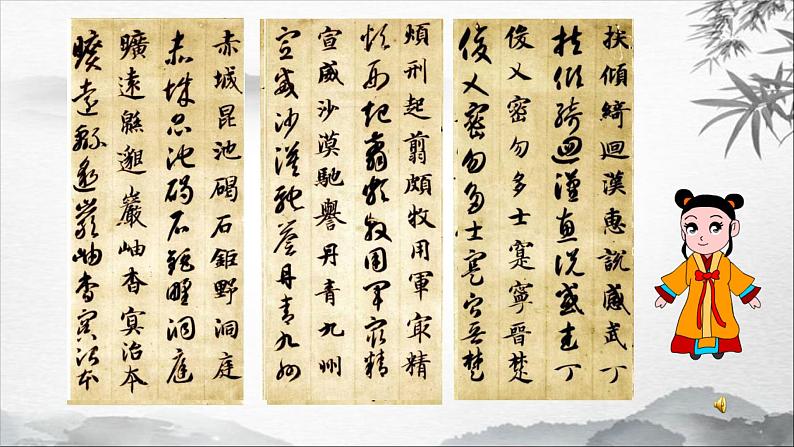 扶傾綺迴漢惠說感武丁
扶傾綺迴漢惠說感武丁
俊乂密勿多士寔寧晉楚
俊乂密勿多士寔寧晉楚
煩刑起翦頗牧用軍冣精
煩刑起翦頗牧用軍冣精
宣威沙漠馳譽丹青九州
宣威沙漠馳譽丹青九州
赤城昆池碣石鉅野洞庭
赤城昆池碣石鉅野洞庭
曠遠緜邈巖岫杳冥治本
曠遠緜邈巖岫杳冥治本